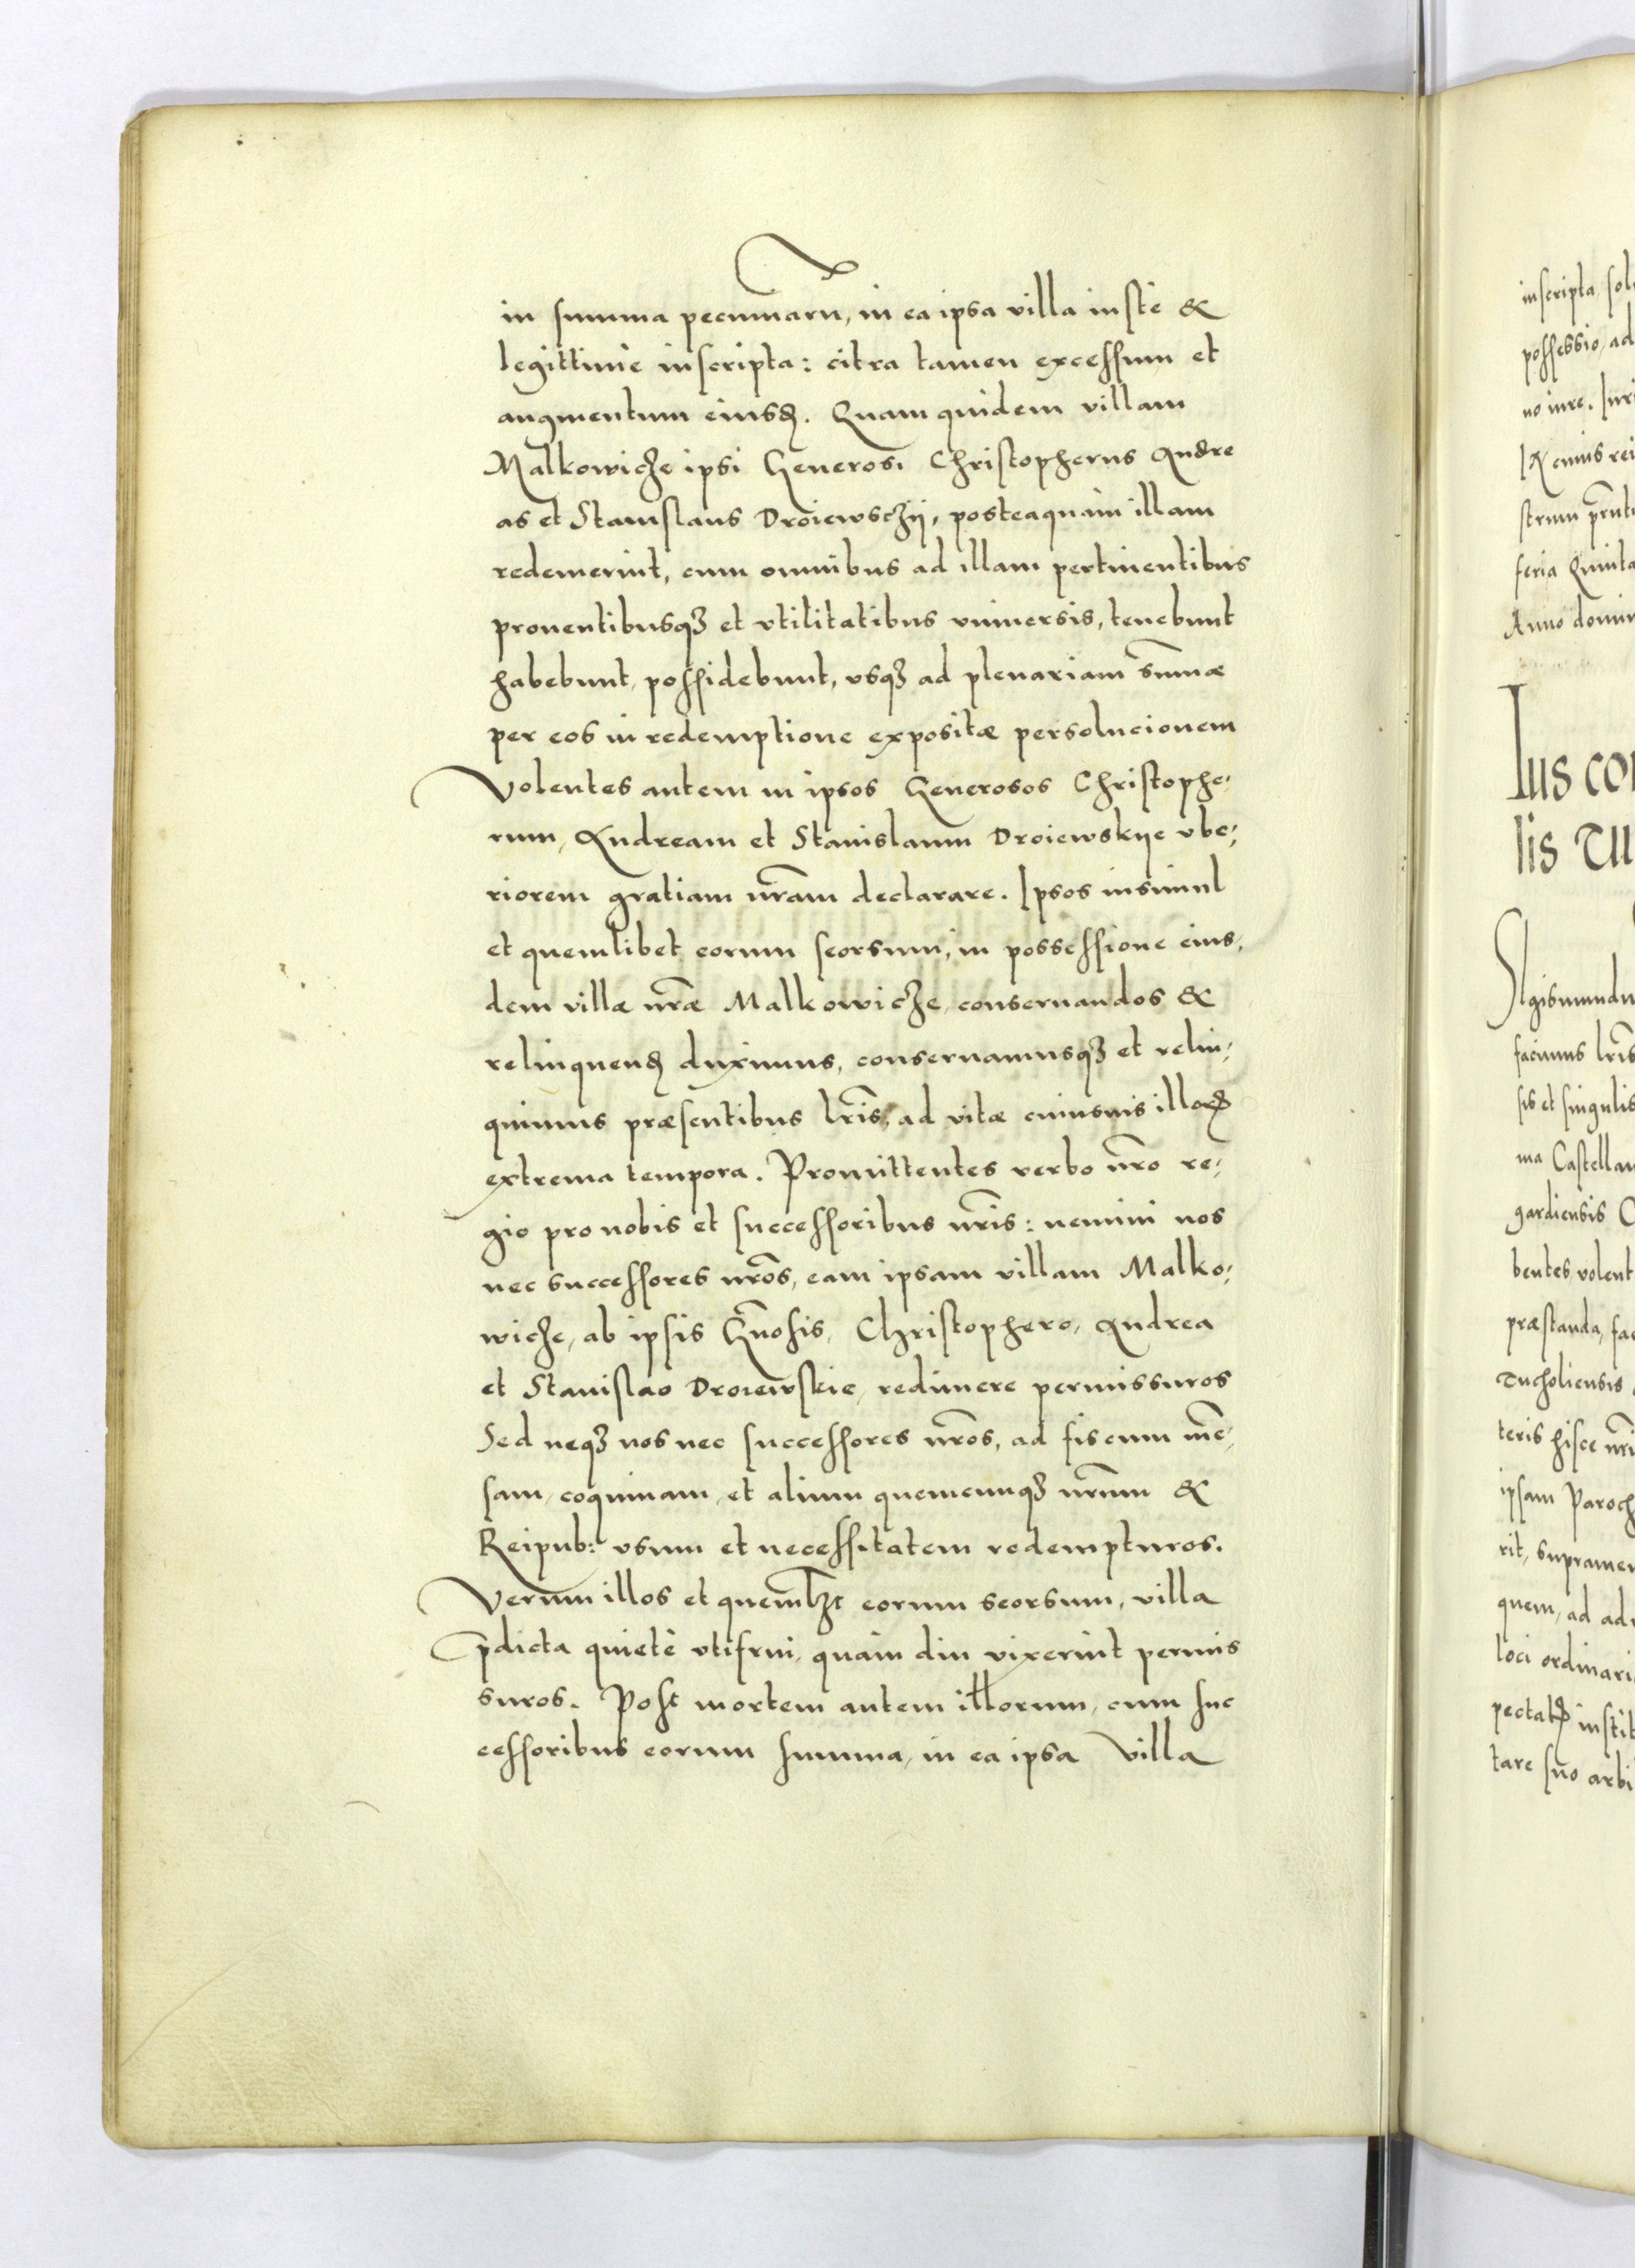 in summa pecuniaru, in ea ipsa villa iustè &
legittimè inscripta: citra tamen excessum et
augmentum eiusꝺ. Quam quidem villam
Malkowicze ipsi Generosi Christopherus Andre
as et Stanislaus Droiewsczij, posteaquàm illam
redemerint, cum omnibus ad illam pertinentibus
prouentibusqꝫ et vtilitatibus vniuersis, tenebunt
habebunt, possidebunt, vsqꝫ ad plenariam sum̃æ
per eos in redemptione expositæ persolucionem
Volentes autem in ipsos Generosos Christophe,
rum, Andream et Stanislaum Droiewskije vbe,
riorem gratiam nr̃am declarare. Ipsos insimul
et quemlibet eorum seorsum, in possessione eius,
dem villæ nr̃æ Malkowicze, conseruandos &
relinquenꝺ duximus, conseruamusqꝫ et relin,
quimus præsentibus lr̃is, ad vitæ cuiusuis illoꝝ
extrema tempora. Promittentes verbo nr̃o re,
gio pro nobis et successoribus nr̃is: nemini nos
nec successores nr̃os, eam ipsam villam Malko,
wicze, ab ipsis Gn̄osis, Christophero, Andrea
et Stanislao Droiewskie, redimere permissuros
Sed neqꝫ nos nec successores nr̃os, ad fiscum mē,
sam, coquinam, et alium quemcunqꝫ nr̃um &
Reipub: vsum et necessitatem redempturos.
Verum illos et quemlꝫt eorum seorsum, villa
p̄dicta quietè vtifrui, quàm diu vixerint permis
suros. Post mortem autem illorum, cum suc
cessoribus eorum summa, in ea ipsa villa
inscripta
possessio, ad
no iure.
feria Quinta
Ius
lis
facimus lr̃is
sis et singulis
gardiensis
præstanda,
Tucholiensis
teris hisce
ipsam
quem, ad
tare suo